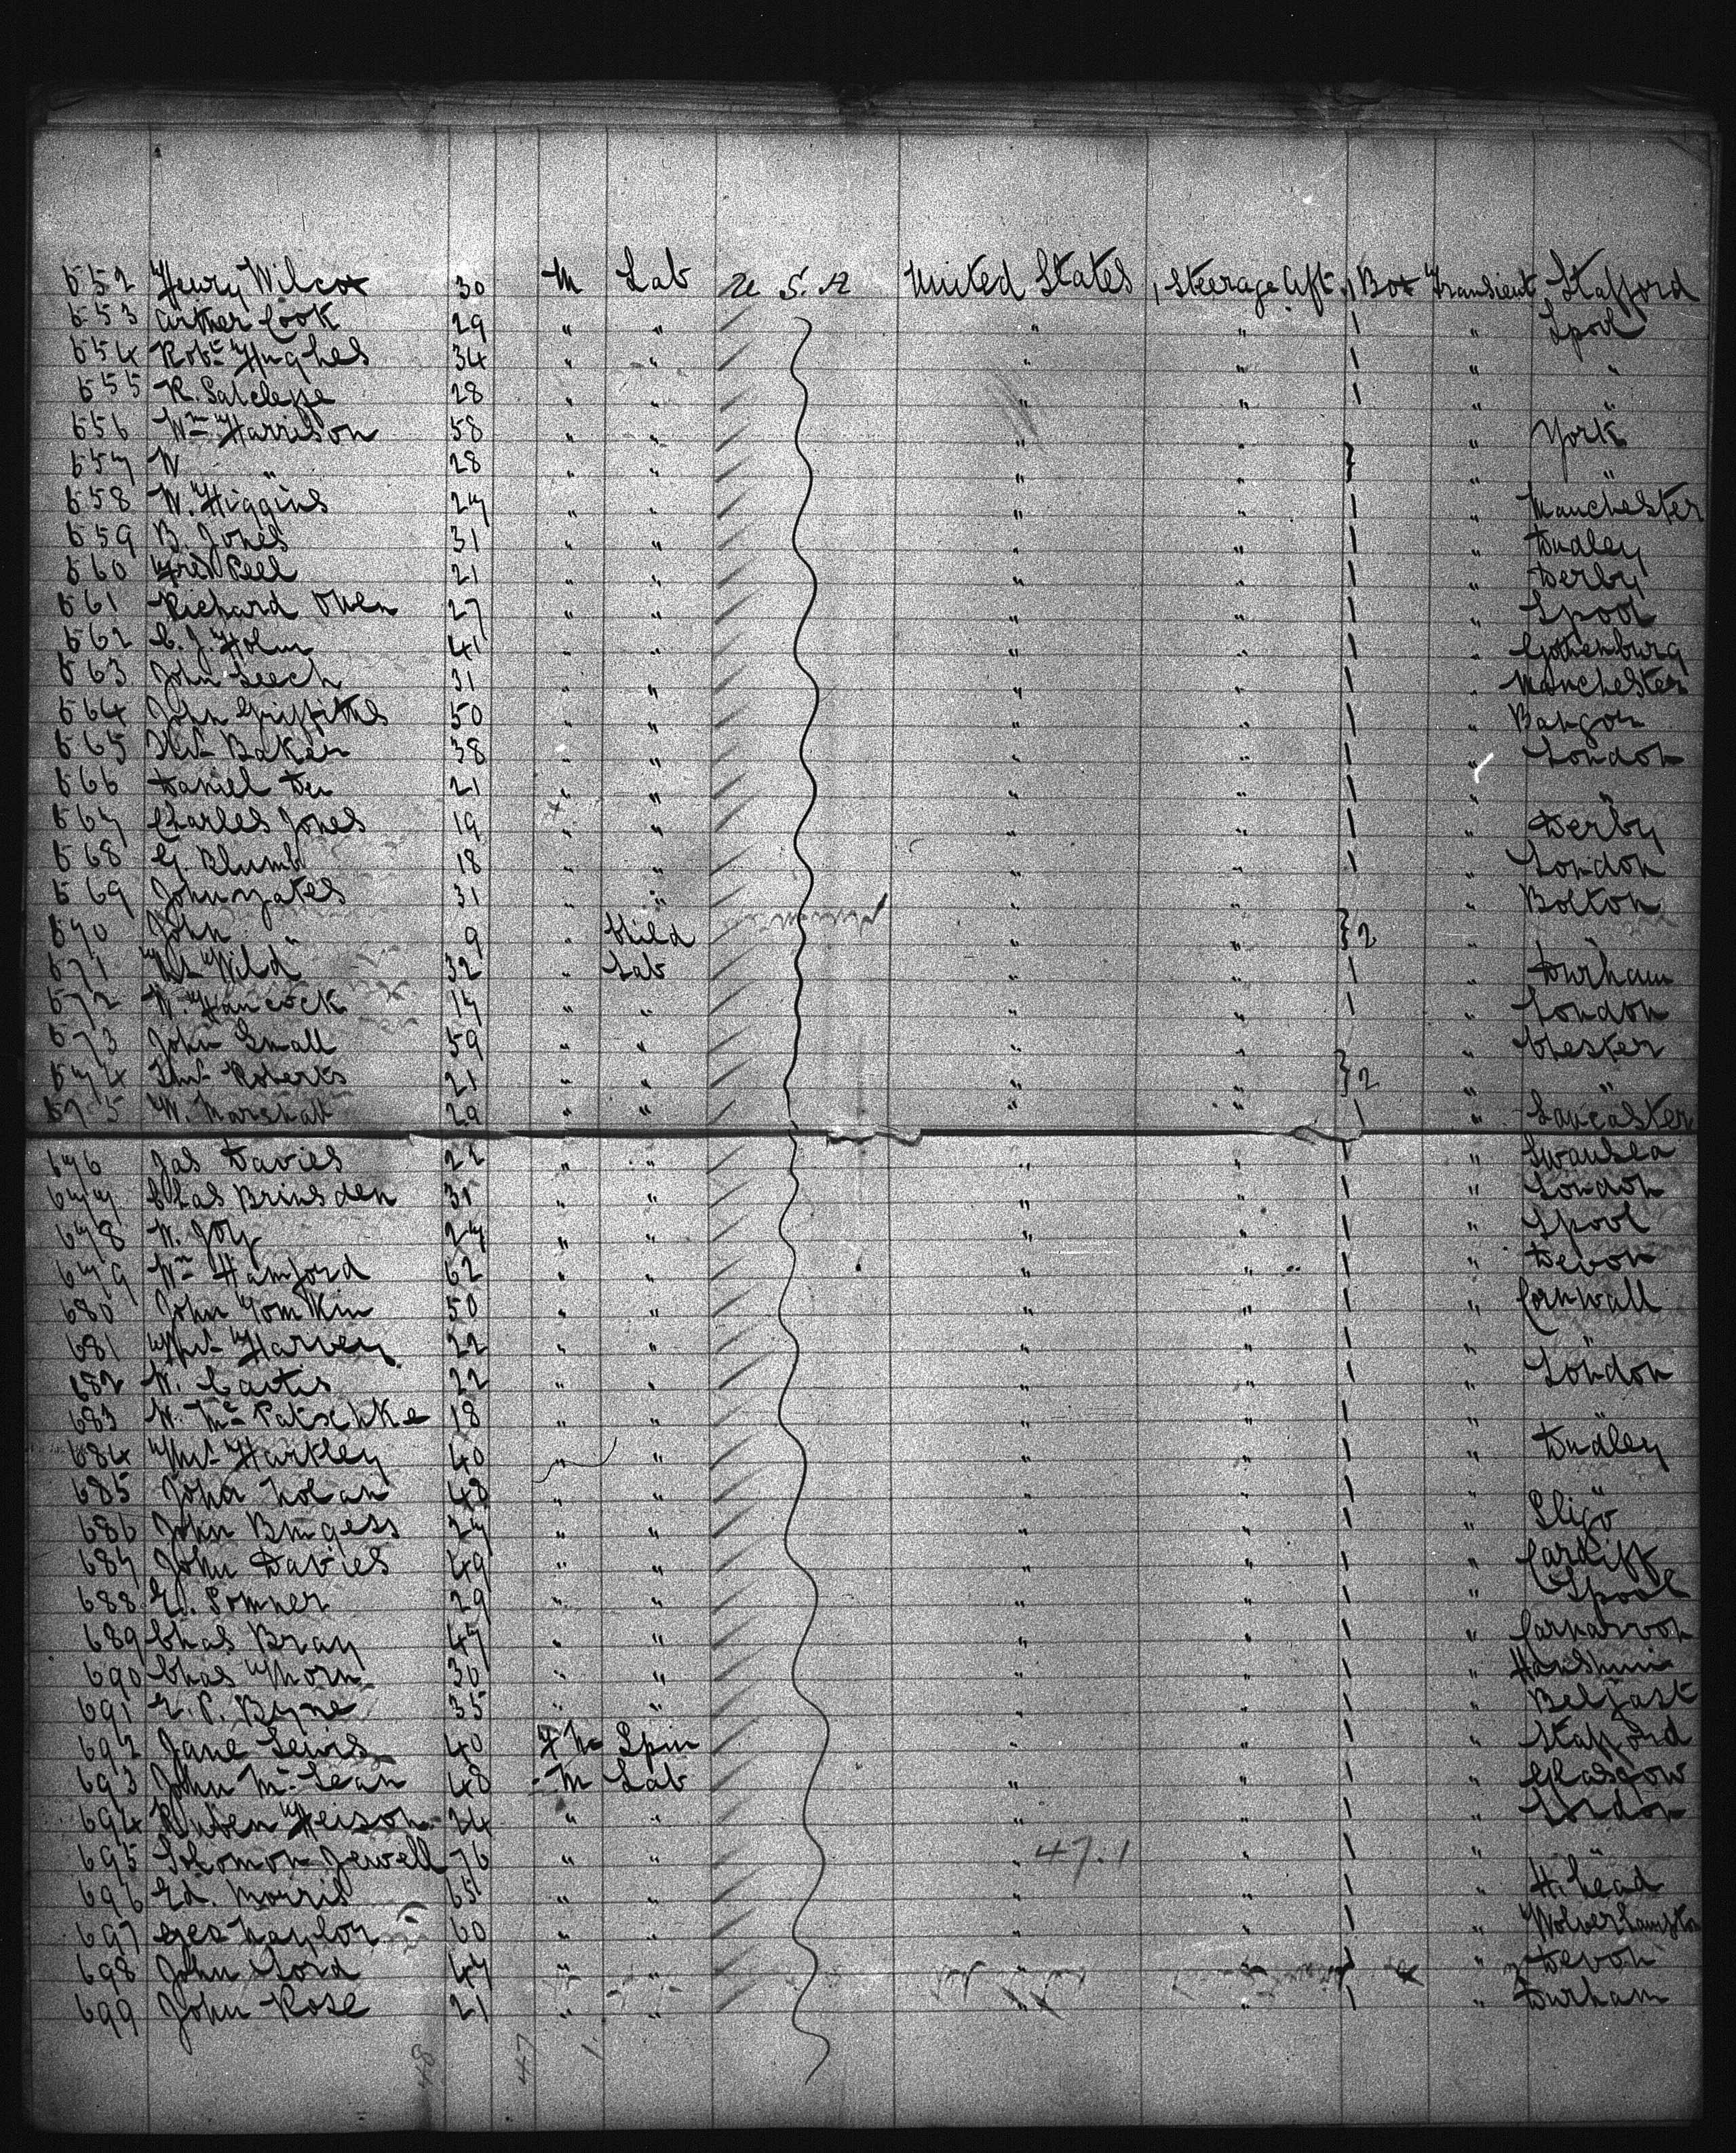 652 Henry Wilcox 30 M Lab U.S.A United States 1 Steerage Aft. 1 Box Transient Stafford
653 Arther Cook 29 " " " " 1 " Lpool
654 Robt Hughes 34 " " " " 1 " "
655 R. Satcleffe 28 " " " " 1 " "
656 Wm Harrison 58 " " " " " York
657 W " 28 " " " " } " "
658 W. Higgins 27 " " " " 1 " Manchester
659 B. Jones 31 " " " " 1 " Dudley
660 Fred Peel 21 " " " " 1 " Derby
661 Richard Owen 27 " " " " 1 " Lpool
662 C. J. Holm 41 " " " " 1 " Gothenburg
663 John Leech 31 " " " " 1 " Manchester
664 John Griffiths 50 " " " " 1 " Bangor
665 Thos Baker 38 " " " " 1 " London
666 Daniel Dew 21 " " " " 1 " "
667 Charles Jones 19 " " " " 1 " Derby
668 G. Blumb 18 " " " " 1 " London
669 John Yates 31 " " " " " Bolton
670 John " 9 " Child " " } 2 " "
671 Wild 32 " Lab " " 1 " Durham
672 W. Hancock 17 " " " " 1 " London
673 John Small 59 " " " " " Chester
674 Thos Roberts 21 " " " " } 2 " "
675 W. Marshall 29 " " " " 1 " Lancaster
676 Jas Davies 22 " " " " 1 " Swansea
677 Chas Brinsden 31 " " " " 1 " London
678 W. Joy 27 " " " " 1 " Lpool
679 Wm Hamford 62 " " " " 1 " Devon
680 John Tomkin 50 " " " " 1 " Cornwall
681 Thos Harvey 22 " " " " 1 " "
682 W. Curtis 22 " " " " 1 " London
683 W. Patschke 18 " " " " 1 " "
684 Thos Hartley 40 " " " " 1 " Dudley
685 John Nolan 48 " " " " 1 " "
686 John Burgess 27 " " " " 1 " Sligo
687 John Davies 49 " " " " 1 " Cardiff
688 G. Pomner 29 " " " " 1 " Lpool
689 Chas Bray 47 " " " " 1 " Carnarvon
690 Chas Thorn 30 " " " " 1 "
691 E. P. Byrne 35 " " " " 1 " Belfast
692 Jane Lewis 40 F M Spin " " 1 " Stafford
693 John McLean 48 M Lab " " 1 " Glasgow
694 Ruben Heison 24 " " " " 1 " London
695 Solomon Jewell 76 " " " 47.1 " 1 " "
696 Ed. Morris 65 " " " " 1 " H.head
697 Geo Naylor 60 " " " " 1 " Wolverhampton
698 John Lord 47 " " " " 1 " Devon
699 John Rose 21 " " " " 1 " Durham
48 47 1